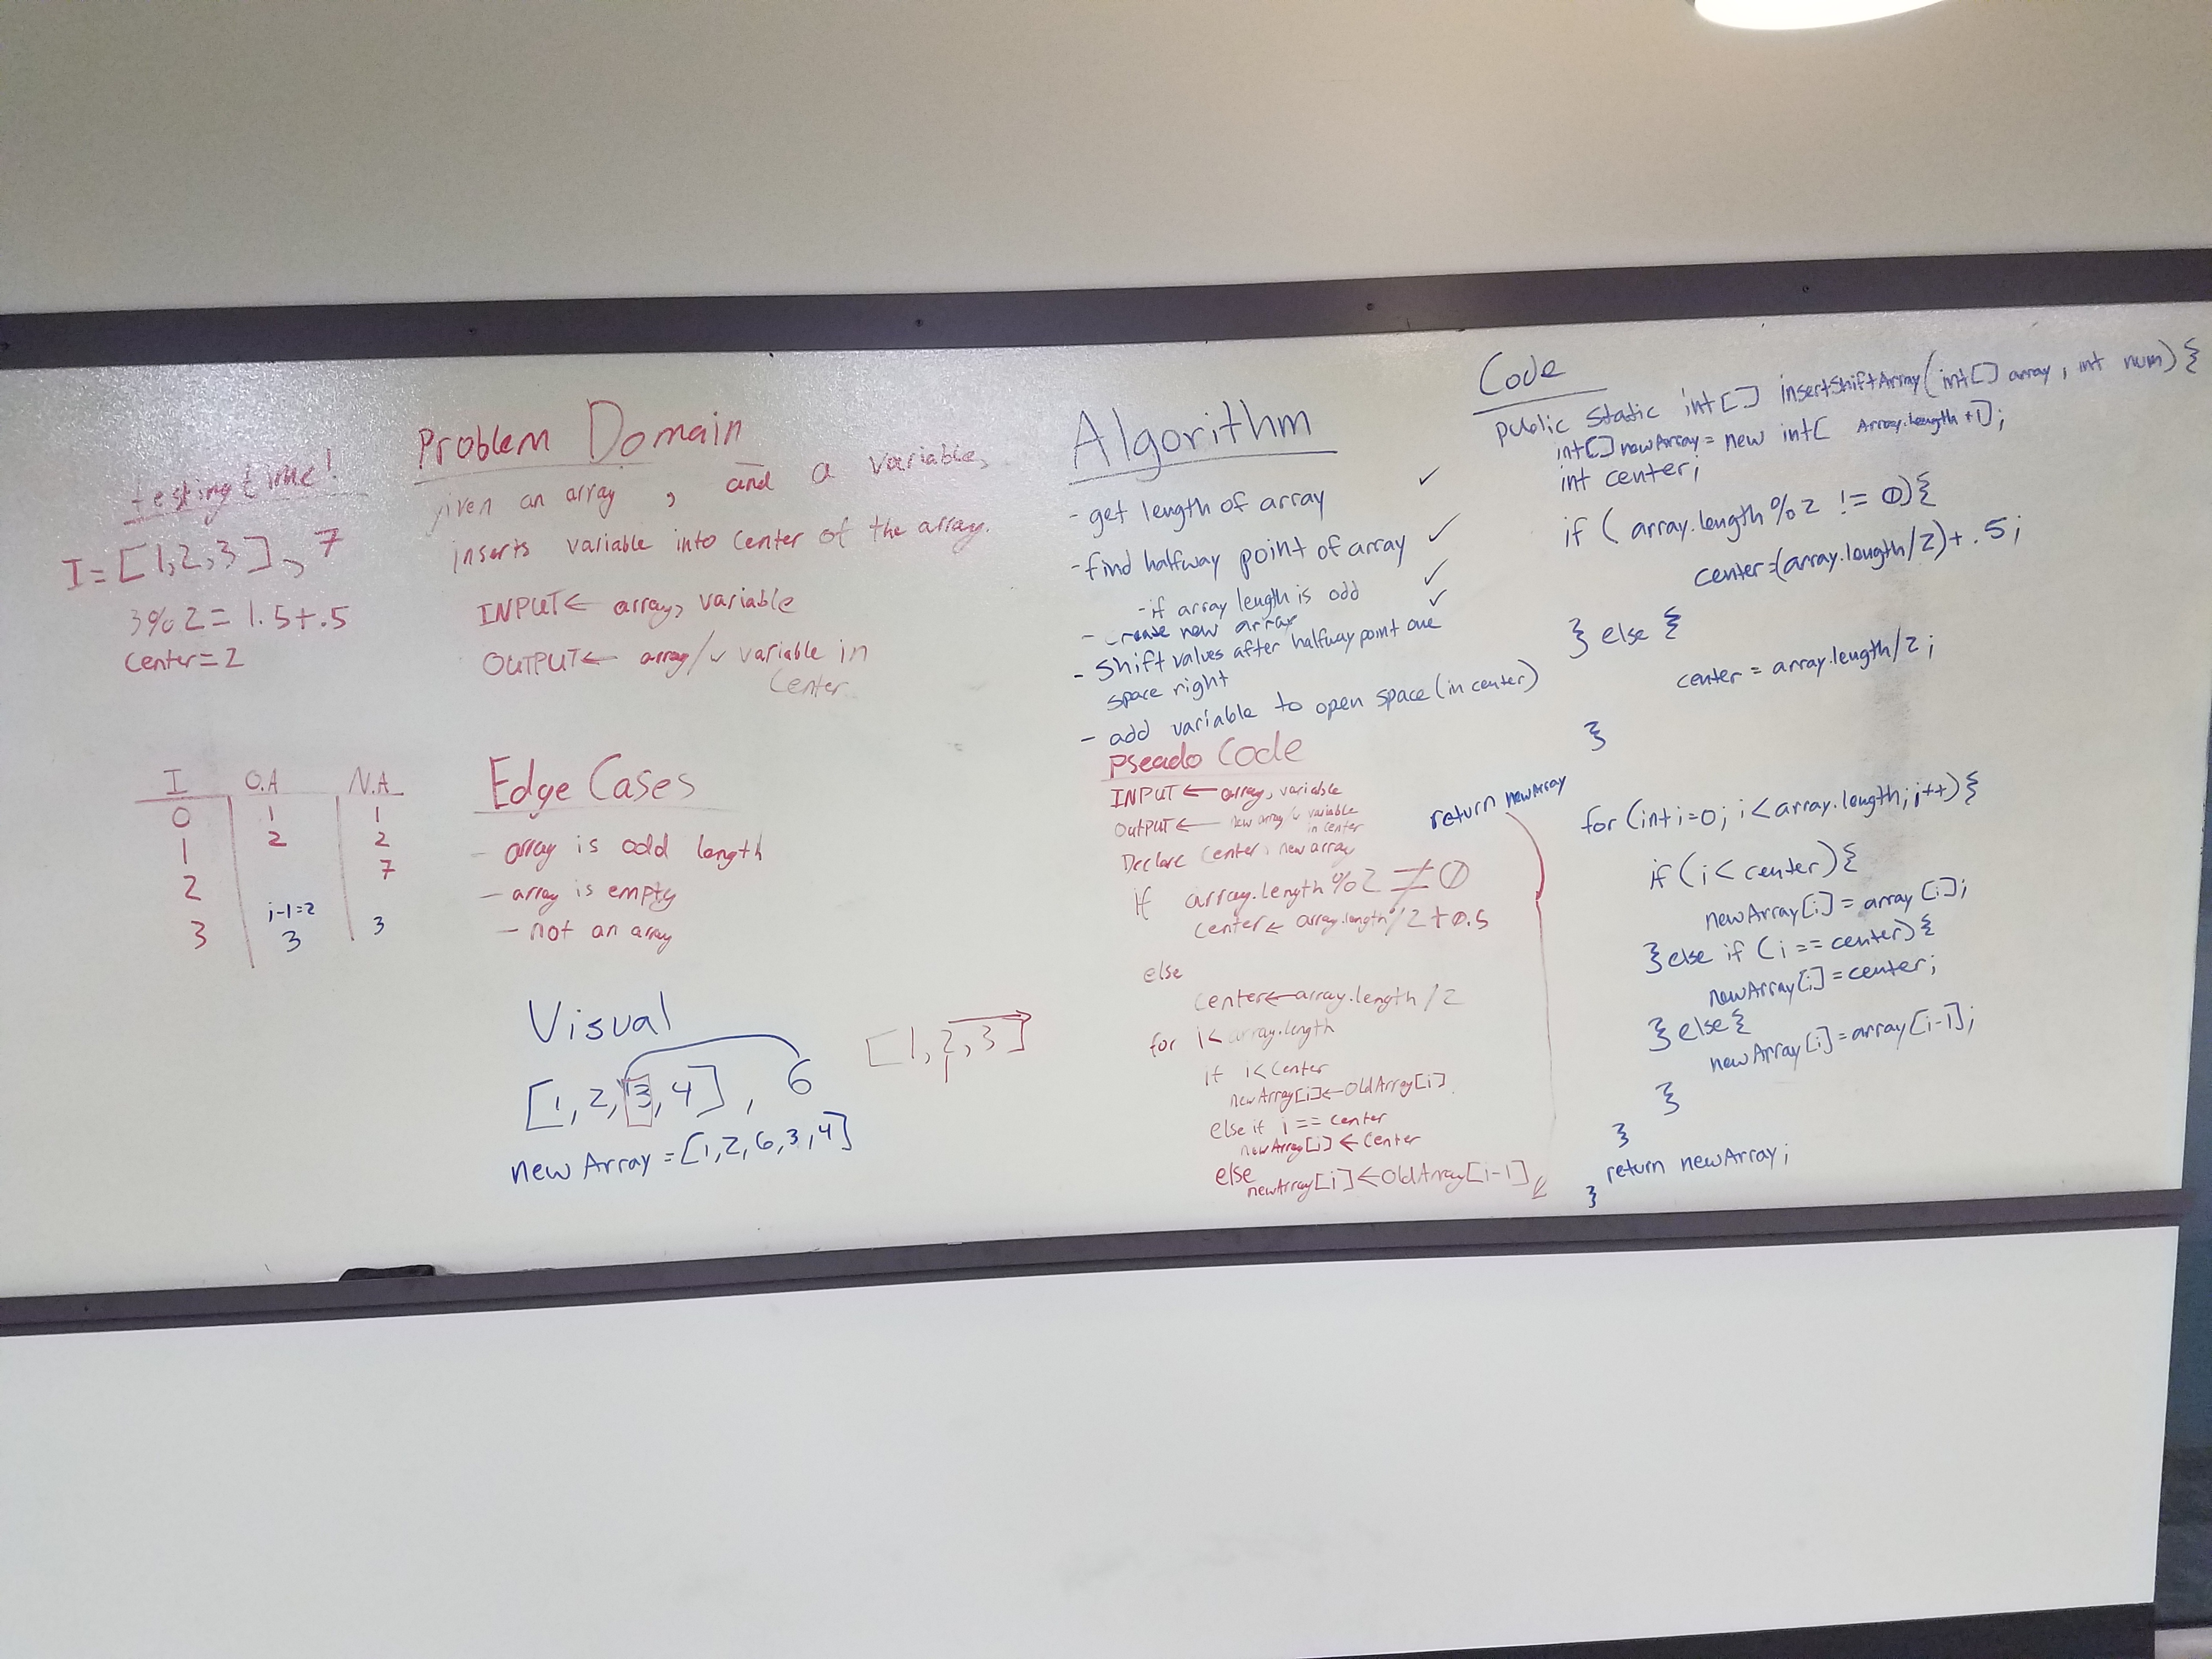 testing time!
I = [1,2,3], 7
3%2 = 1.5+.5
center=2
I O.A N.A
0 1 1
1 2 2
2 7
i-1=2
3 3 3
Problem Domain
given an array, and a variable,
inserts variable into center of the array.
INPUT← array, variable
OUTPUT← array/w variable in
center
Edge Cases
- array is odd length
- array is empty
- not an array
Visual
[1,2,3,4], 6
newArray=[1,2,6,3,4]
[1,2,3]
Algorithm
- get length of array ✓
- find halfway point of array ✓
- if array length is odd ✓
- create new array ✓
- shift values after halfway point one
space right
- add variable to open space (in center)
Pseado Code
INPUT ← array, variable
OUtPUT ← new array w variable
in center
Declare center, new array
if array.length%2 ≠ 0
center ← array.length/2+0.5
else
center←array.length/2
for i< array.length
if i<center
newArray[i]←OldArray[i]
else if i == center
newArray[i] ← Center
else
newArray[i]←OldArray[i-1]
return newArray
Code
public static int[] insertShiftArray(int[] array, int num){
int[] newArray = new int[ Array.length +1];
int center;
if ( array.length%2 != 0){
center=(array.length/2)+.5;
} else {
center = array.length/2;
}
for (int i=0; i<array.length; i++){
if (i< center){
newArray[i]=array[i];
}else if (i == center){
newArray[i]=center;
} else{
newArray[i]=array[i-1];
}
}
return newArray;
}